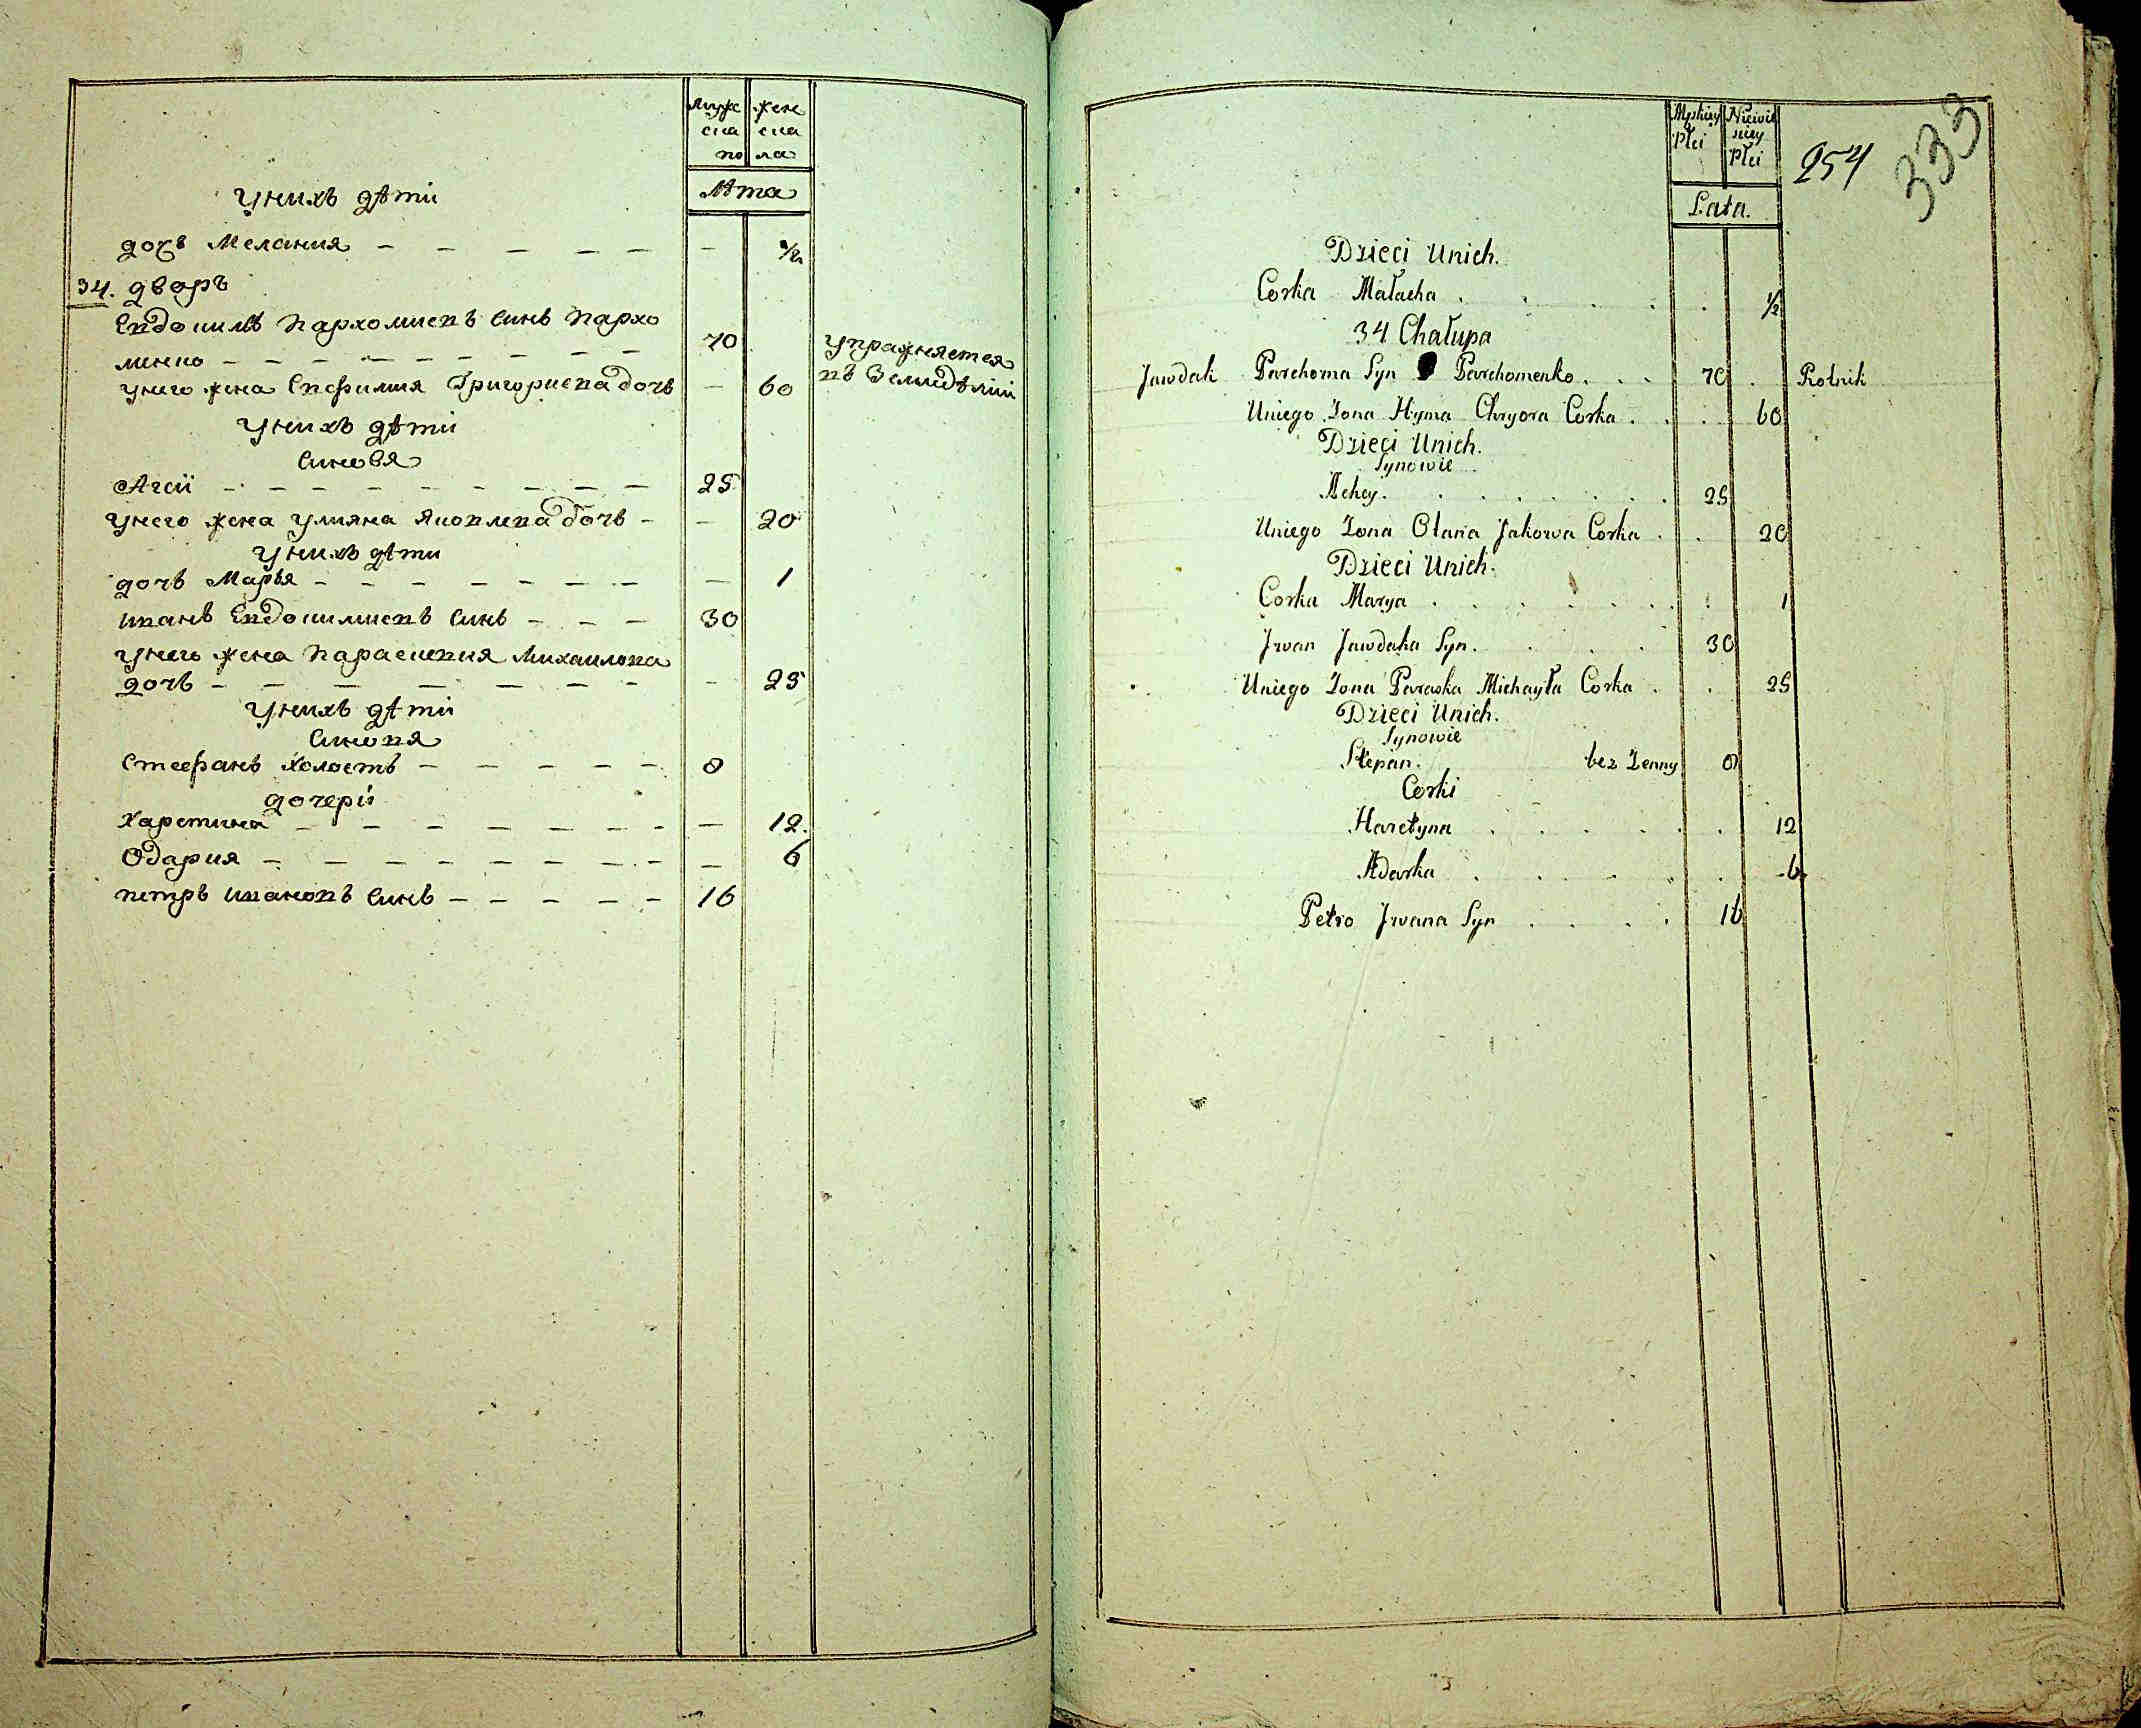 муже жен
ска ска
по ла
Лѣта
Унихъ дѣти
дочь Мелания — — — — — — ½
34. дворъ
Евдокимъ Пархомиевъ синъ Пархо
менко — — — — — — — — — 70
упражняется
въ Земледѣлїи
унего жена Евфимия Григориева дочь — 60
Унихъ дѣти
синовя
Агей — — — — — — — — — 25
Унего жена Улияна Яковлева дочь — — 20
Унихъ дѣти
дочь Марья — — — — — — — — 1
иванъ Евдокимиевъ синъ — — — 30
Унего жена Параскевия Михаилова
дочь — — — — — — — — 25
Унихъ дѣти
синовя
Стефанъ Холостъ — — — — — 8
дочерїи
Харетина — — — — — — — — 12.
Одария — — — — — — — — — 6
петръ ивановъ синъ — — — — — 16
Męskiey Niewie
Płci sciey
Płci
254
333
Lata.
Dzieci Unich.
Corka Małacha . . . . . . ½
34 Chałupa
Jawdak Parchoma Syn Parchomenko . . . 70 . Rolnik
Uniego Zona Hyma Chryora Corka . . . 60
Dzieci Unich.
Synowie
Ahey. . . . . . . . . 25
Uniego Zona Olana Jakowa Corka . . 20
Dzieci Unich.
Corka Marya . . . . . . . . 1
Jwan Jawdaka Syn. . . . . 30
Uniego Zona Paraska Michayła Corka . . 25
Dzieci Unich.
Synowie
Stepan. bez Zenny 8
Corki
Haretyna . . . . . . 12
Adarka . . . . . . 6
Petro Jwana Syn . . . . 16